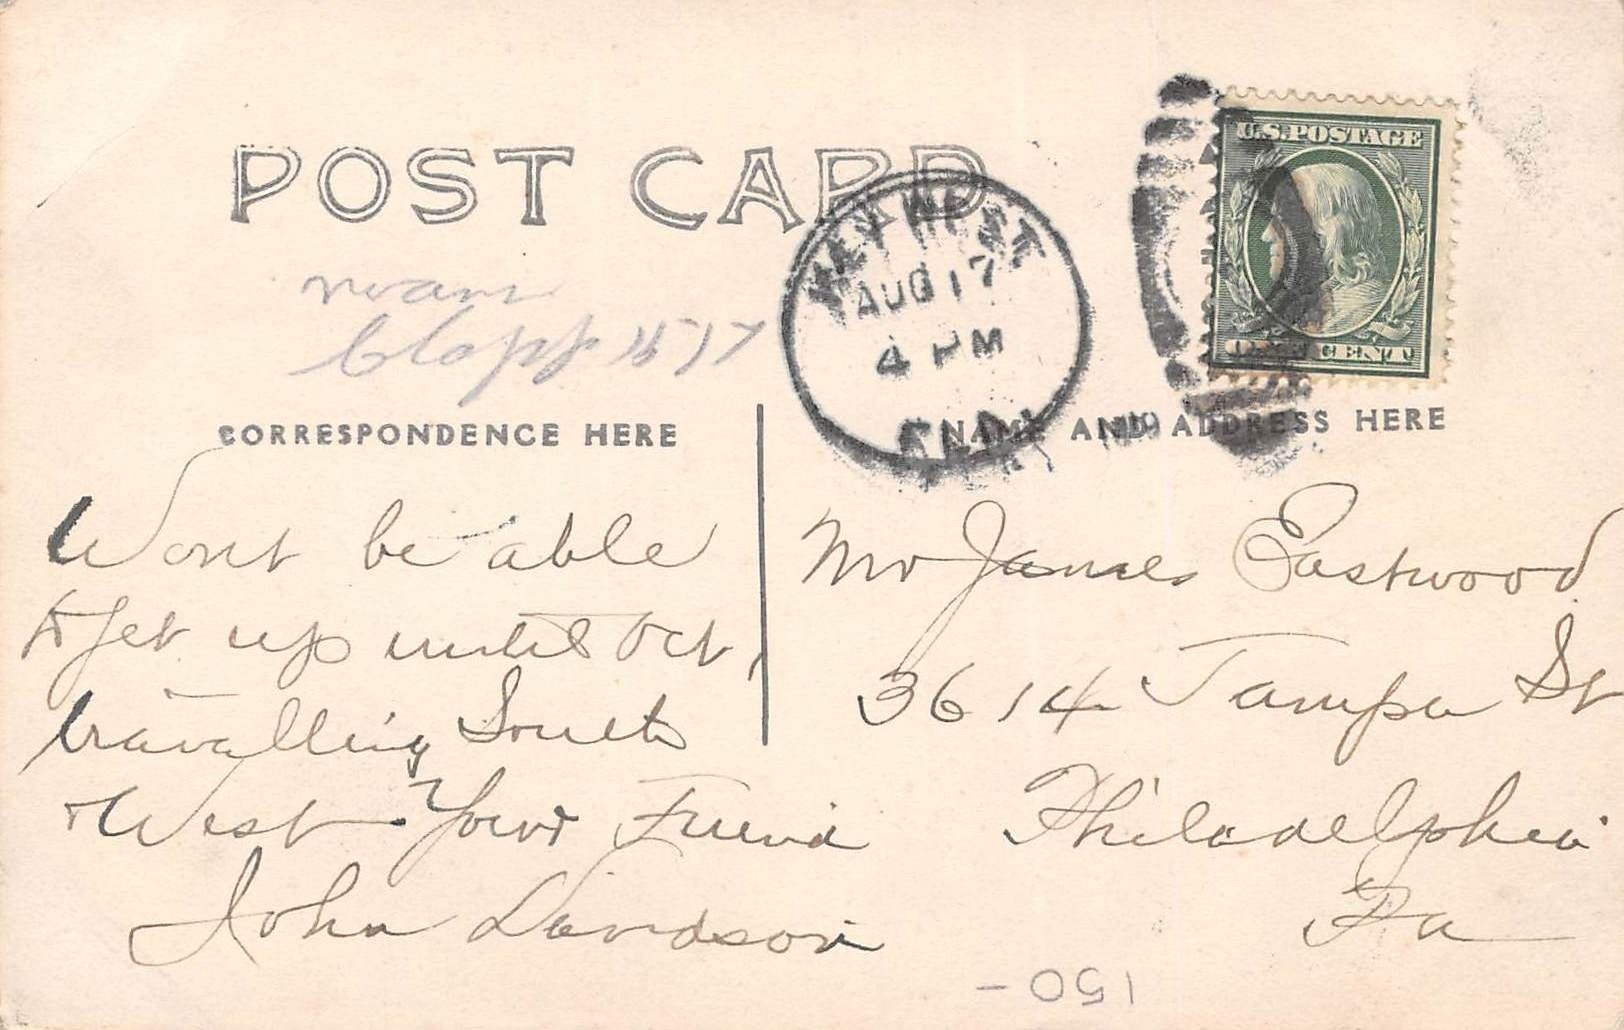 POST CARD
U.S. POSTAGE
ONE CENT
KEY WEST
AUG 17
4 PM
FLA.
Clapp
CORRESPONDENCE HERE
NAME AND ADDRESS HERE
Wont be able
to get up until Oct,
travalling South
+ West. Your Friend
John Davidson
Mr James Eastwood
3614 Tampa St
Philadelphia
Pa
150-